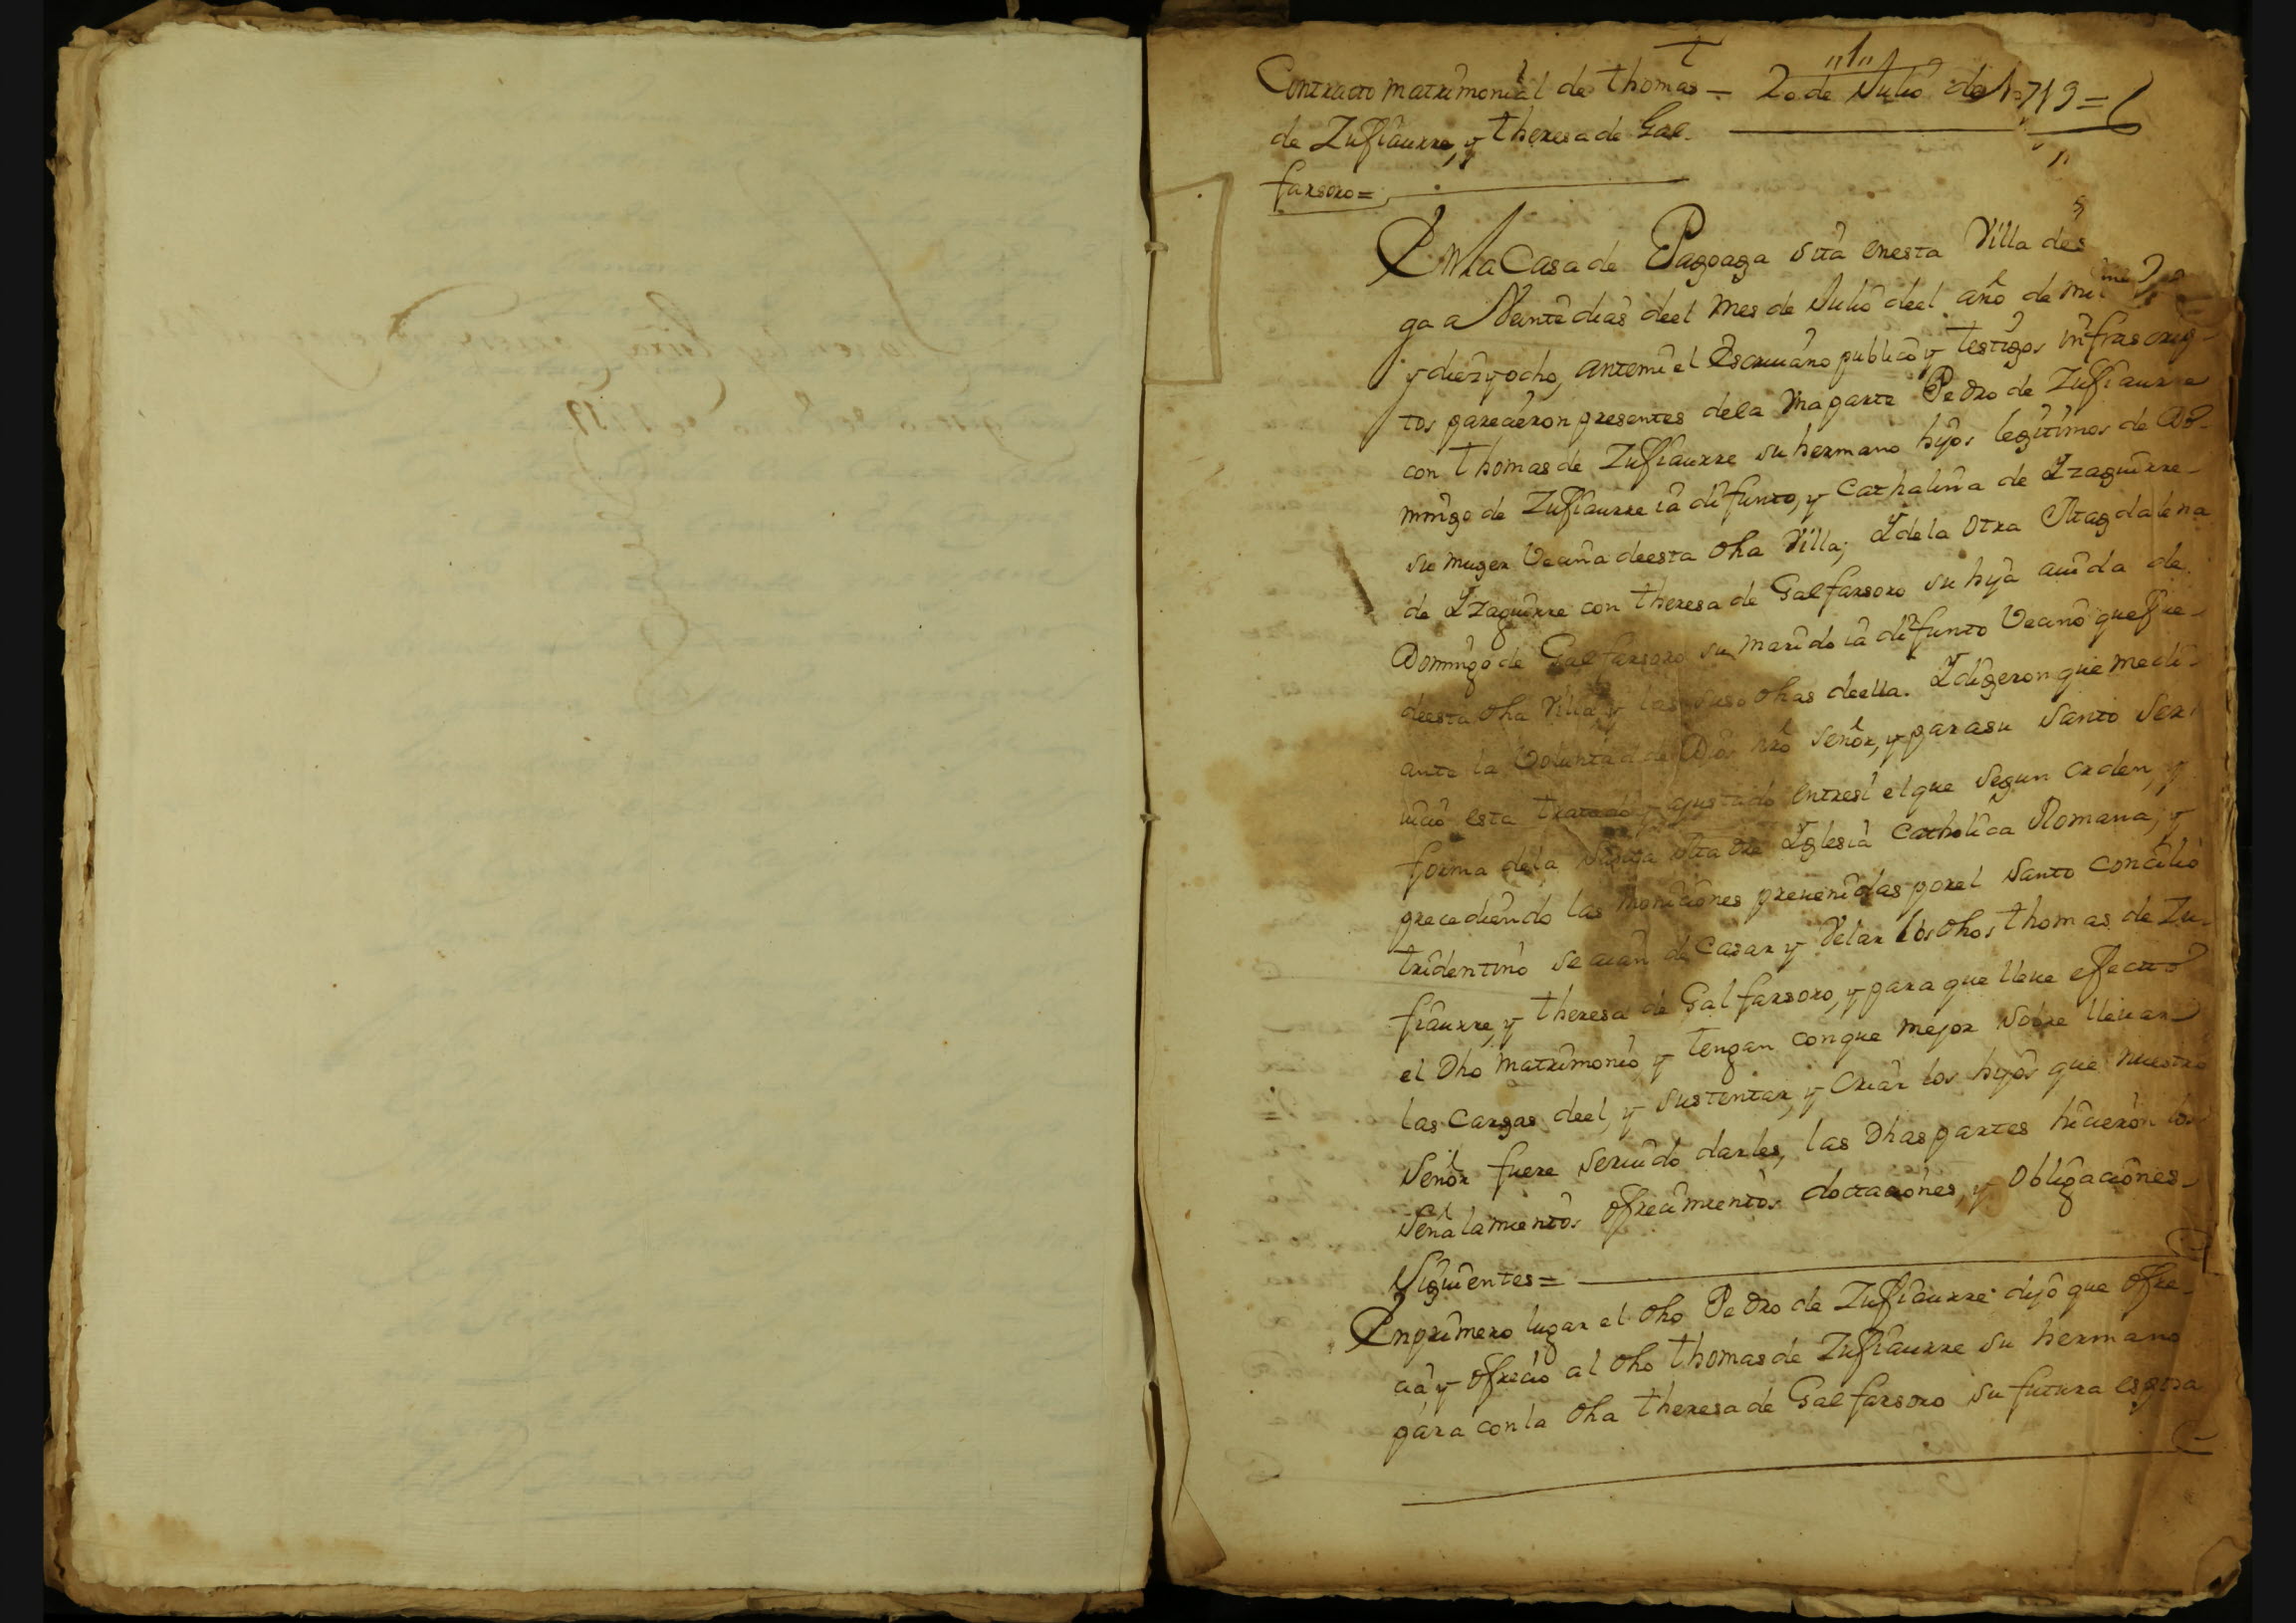 "1"
Contracto matrimonial de thomas – 20 de Julio de 1719 =
de Zufiaurre, y theresa de Gal-
farsoro =
En la Casa de Pagoaga sita en esta Villa de
ga a Veinte dias de el mes de Julio de el año de mil
y diez y ocho, ante mi el Escriuano publico y testigos infrascrip-
tos parecieron presentes de la Vna parte Pedro de Zufiaurre
con thomas de Zufiaurre su hermano hijos legitimos de Do-
mingo de Zufiaurre ia difunto, y Cathalina de Yzaguirre
su muger Vecina de esta dha Villa; Y de la Otra Magdalena
de Yzaguirre con theresa de Galfarsoro su hija auida de
Domingo de Galfarsoro su marido ia difunto Vecino que fue
de esta dha Villa y las suso dhas de ella. Y digeron que medi-
ante la Voluntad de Dios nro Señor, y para su Santo Ser-
uicio esta tratado y ajustado entre si el que segun orden, y
forma de la Santa Madre Yglesia Catholica Romana, y
precediendo las moniciones preuenidas por el Santo Concilio
tridentino se aian de Casar y Velar los dhos thomas de Zu-
fiaurre, y theresa de Galfarsoro, y para que lleue efecto
el Dho matrimonio y tengan con que mejor Sobre lleuar
las Cargas de el, y sustentar, y Criar los hijos que nuestro
Señor fuere seruido darles, las Dhas partes hicieron los
Señalamientos ofrecimientos doctaciones, y Obligaciones
Siguientes =
En primero lugar el dho Pedro de Zufiaurre dijo que ofre-
cia y ofrecio al dho thomas de Zufiaurre su hermano
para con la dha theresa de Galfarsoro su futura esposa